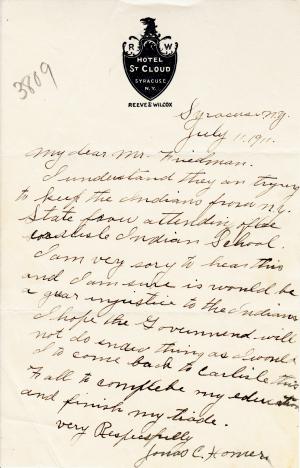 R W
HOTEL
ST CLOUD
SYRACUSE
N.Y.
REEVE & WILCOX
3809
Syracuse N.Y.
July 1. 1911.
My dear Mr. Friedman.
I understand they are trying
to keep the Indians from N.y.
State from attending
Carlisle Indian School.
I am very sory to hear this
and I am sure is would be
a gear injustic to the Indians
I hope the Government will
not do
to come back to Carlisle this
Fall to complete my education
and finish my trade.
very Respecsfully
James C. Homer.